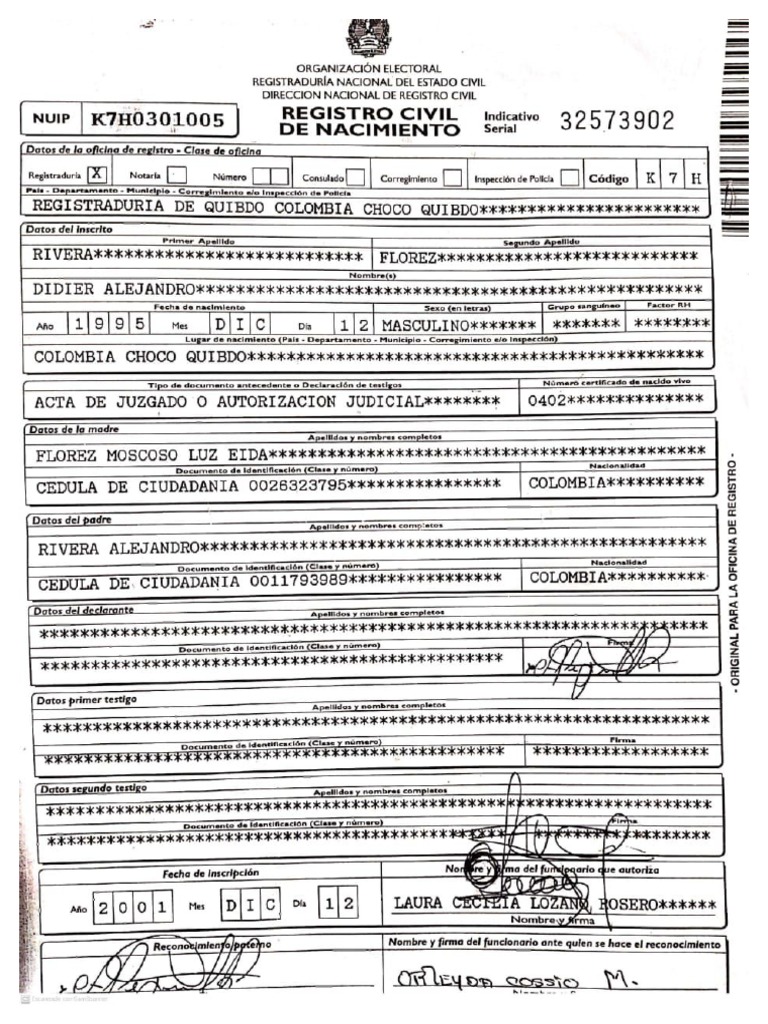 ORGANIZACIÓN ELECTORAL
REGISTRADURÍA NACIONAL DEL ESTADO CIVIL
DIRECCION NACIONAL DE REGISTRO CIVIL
NUIP K7H0301005
REGISTRO CIVIL DE NACIMIENTO
Indicativo Serial 32573902
Datos de la oficina de registro - Clase de oficina
Registraduría X Notaría Número Consulado Corregimiento Inspección de Policía Código K 7 H
País - Departamento - Municipio - Corregimiento e/o Inspección de Policía
REGISTRADURIA DE QUIBDO COLOMBIA CHOCO QUIBDO***********************
Datos del inscrito
Primer Apellido Segundo Apellido
RIVERA************************** FLOREZ*************************
Nombre(s)
DIDIER ALEJANDRO************************************************
Fecha de nacimiento Sexo (en letras) Grupo sanguíneo Factor RH
Año 1 9 9 5 Mes D I C Día 1 2 MASCULINO******* ******* ********
Lugar de nacimiento (País - Departamento - Municipio - Corregimiento e/o Inspección)
COLOMBIA CHOCO QUIBDO*******************************************
Tipo de documento antecedente o Declaración de testigos Número certificado de nacido vivo
ACTA DE JUZGADO O AUTORIZACION JUDICIAL******** 0402**************
Datos de la madre
Apellidos y nombres completos
FLOREZ MOSCOSO LUZ EIDA*****************************************
Documento de Identificación (Clase y número) Nacionalidad
CEDULA DE CIUDADANIA 0026323795**************** COLOMBIA**********
Datos del padre
Apellidos y nombres completos
RIVERA ALEJANDRO************************************************
Documento de Identificación (Clase y número) Nacionalidad
CEDULA DE CIUDADANIA 0011793989**************** COLOMBIA**********
Datos del declarante
Apellidos y nombres completos
****************************************************************
Documento de Identificación (Clase y número) Firma
***********************************************
Datos primer testigo
Apellidos y nombres completos
****************************************************************
Documento de Identificación (Clase y número) Firma
*********************************************** *****************
Datos segundo testigo
Apellidos y nombres completos
****************************************************************
Documento de Identificación (Clase y número) Firma
*********************************************** *****************
Fecha de inscripción Nombre y firma del funcionario que autoriza
Año 2 0 0 1 Mes D I C Día 1 2 LAURA CECILIA LOZANO ROSERO******
Nombre y firma
Reconocimiento paterno Nombre y firma del funcionario ante quien se hace el reconocimiento
ORLEYDA COSSIO M.
- ORIGINAL PARA LA OFICINA DE REGISTRO -